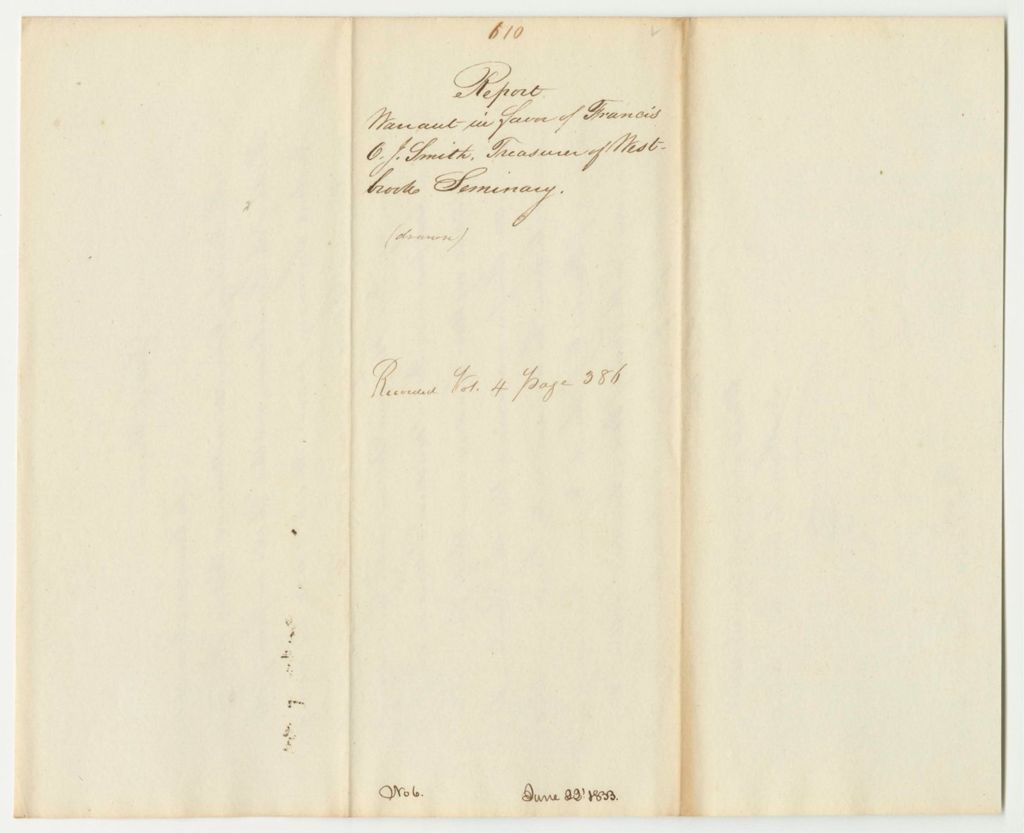 610
Report
Warrant in favor of Francis
O. J. Smith, Treasurer of West-
brook Seminary.
(drawn)
Recorded Vol. 4 page 386
No 6.
June 22d 1833.